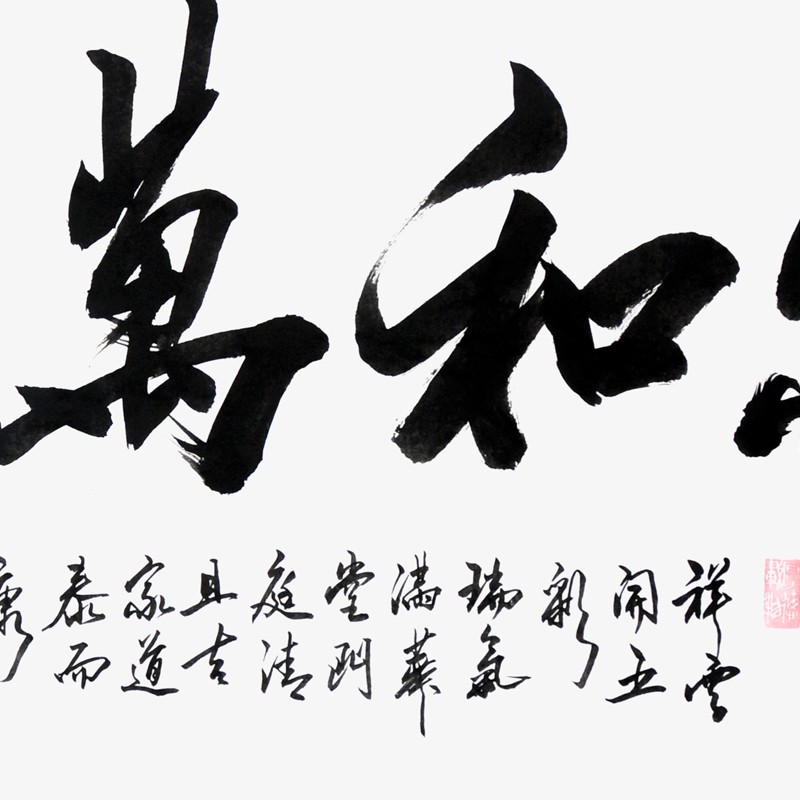 和萬
祥雲
開五
彩
瑞氣
滿華
堂門
庭清
且吉
家道
泰而
康